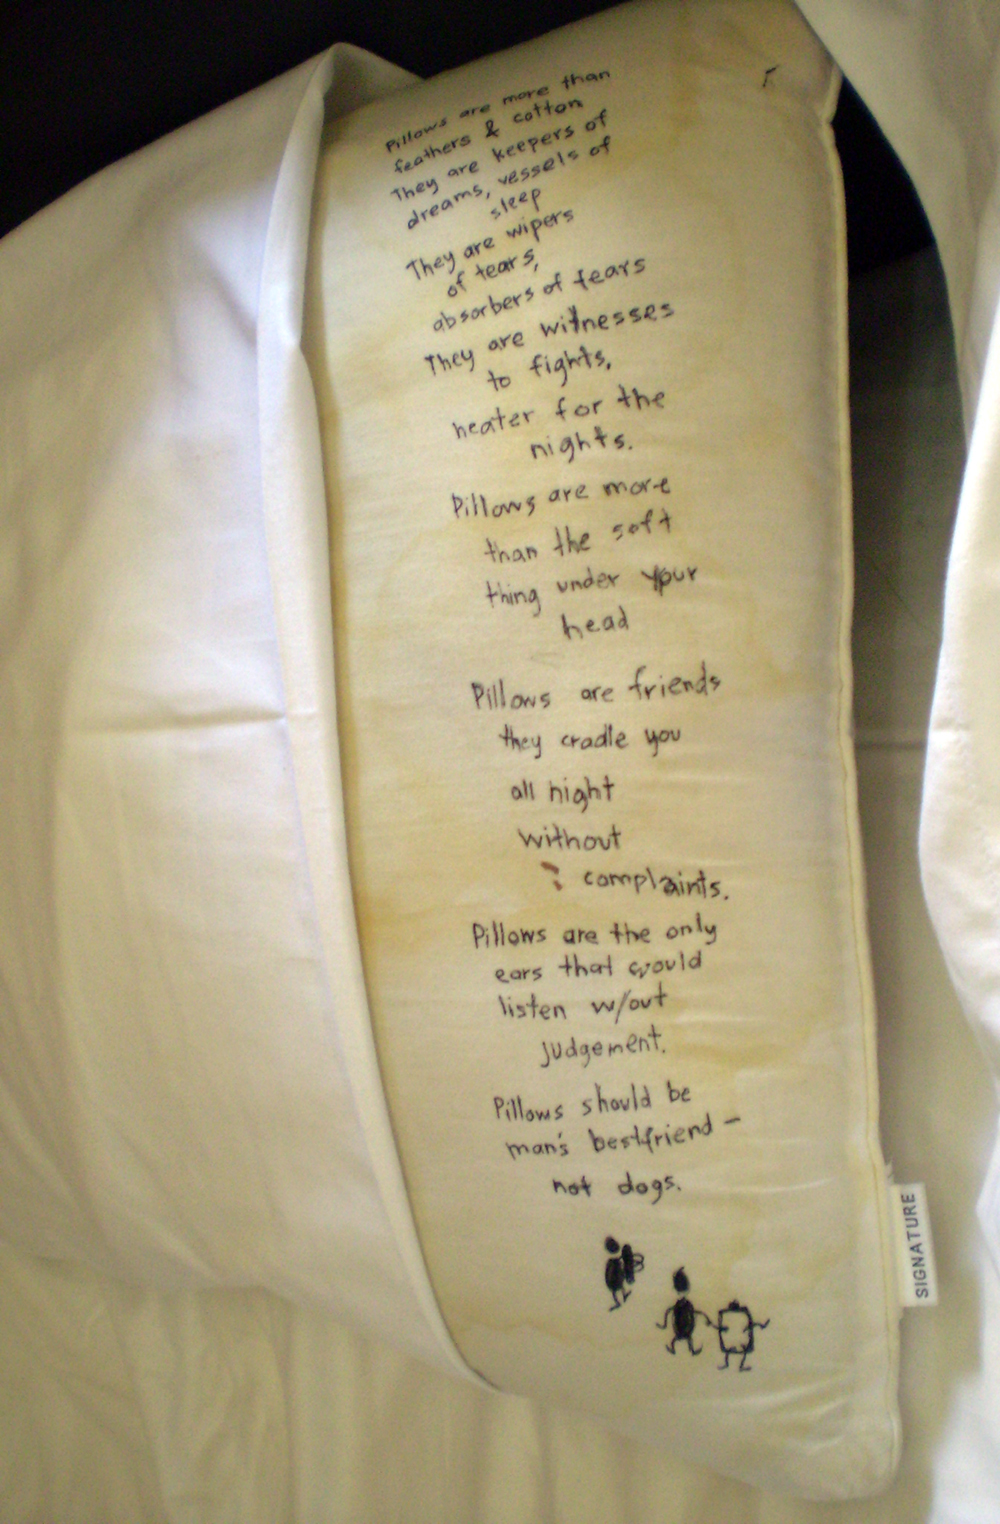 Pillows are more than
feathers & cotton
They are keepers of
dreams, vessels of
sleep
They are wipers
of tears,
absorbers of fears
They are witnesses
to fights,
heater for the
nights.
Pillows are more
than the soft
thing under your
head
Pillows are friends
they cradle you
all night
without
complaints.
Pillows are the only
ears that would
listen w/out
judgement.
Pillows should be
man's bestfriend -
not dogs.
SIGNATURE